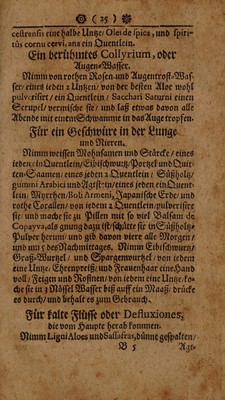 (25)
cestrensis eine halbe Untze/ Olei de spica, und spiri-
tus cornu cervi, ana ein Quentlein.
Ein berühmtes Collyrium, oder
Augen-Wasser.
Nimm von rothen Rosen und Augentrost-Was-
ser/ eines jeden 2 Untzen/ von der besten Aloe wohl
pulverisirt/ ein Quentlein/ Sacchari Saturni einen
Scrupel/ vermische sie/ und laß etwas davon alle
Abende mit einem Schwamme in das Auge tropfen.
Für ein Geschwüre in der Lunge
und Nieren.
Nimm weissen Mohnsamen und Stärcke/ eines
jeden/ ein Quentlein/ Eibischwurtz/ Portzel und Quit-
ten-Saamen/ eines jeden 2 Quentlein/ Süßholtz/
gummi Arabici und Agtstein/ eines jeden ein Quent-
lein/ Myrrhen/ Boli Armeni, Japanische Erde/ und
rothe Corallen/ von jedem 2 Quentlein/ pulverisire
sie/ und mache sie zu Pillen mit so viel Balsam de
Copayva, als gnung dazu ist/ schütte sie in Süßholtz-
Pulver herum/ und gib davon viere alle Morgen/
und um 5 des Nachmittages. Nimm Eibischwurtz/
Graß-Wurtzel/ und Spargenwurtzel/ von jedem
eine Untze/ Ehrenpreiß/ und Frauenhaar eine Hand
voll/ Feigen und Rosinen/ von jedem eine Untze/ ko-
che sie in 3 Nössel Wasser biß auff ein Maaß/ drücke
es durch/ und behalt es zum Gebrauch.
Für kalte Flüsse oder Defluxiones,
die vom Haupte herab kommen.
Nimm Ligni Aloes und Sassafras, dünne gespalten/
B 5 Agt-